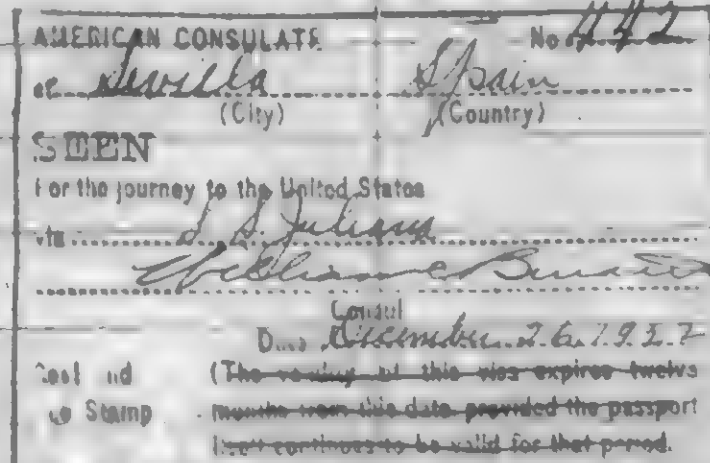 AMERICAN CONSULATE No 442
at Sevilla Spain
(City) (Country)
SEEN
For the journey to the United States
via S. S. Juliana
William C
Consul
Date December 26, 1937
Seal and (The validity of this visa expires twelve
Fee Stamp months from this date provided the passport
itself continues to be valid for that period.